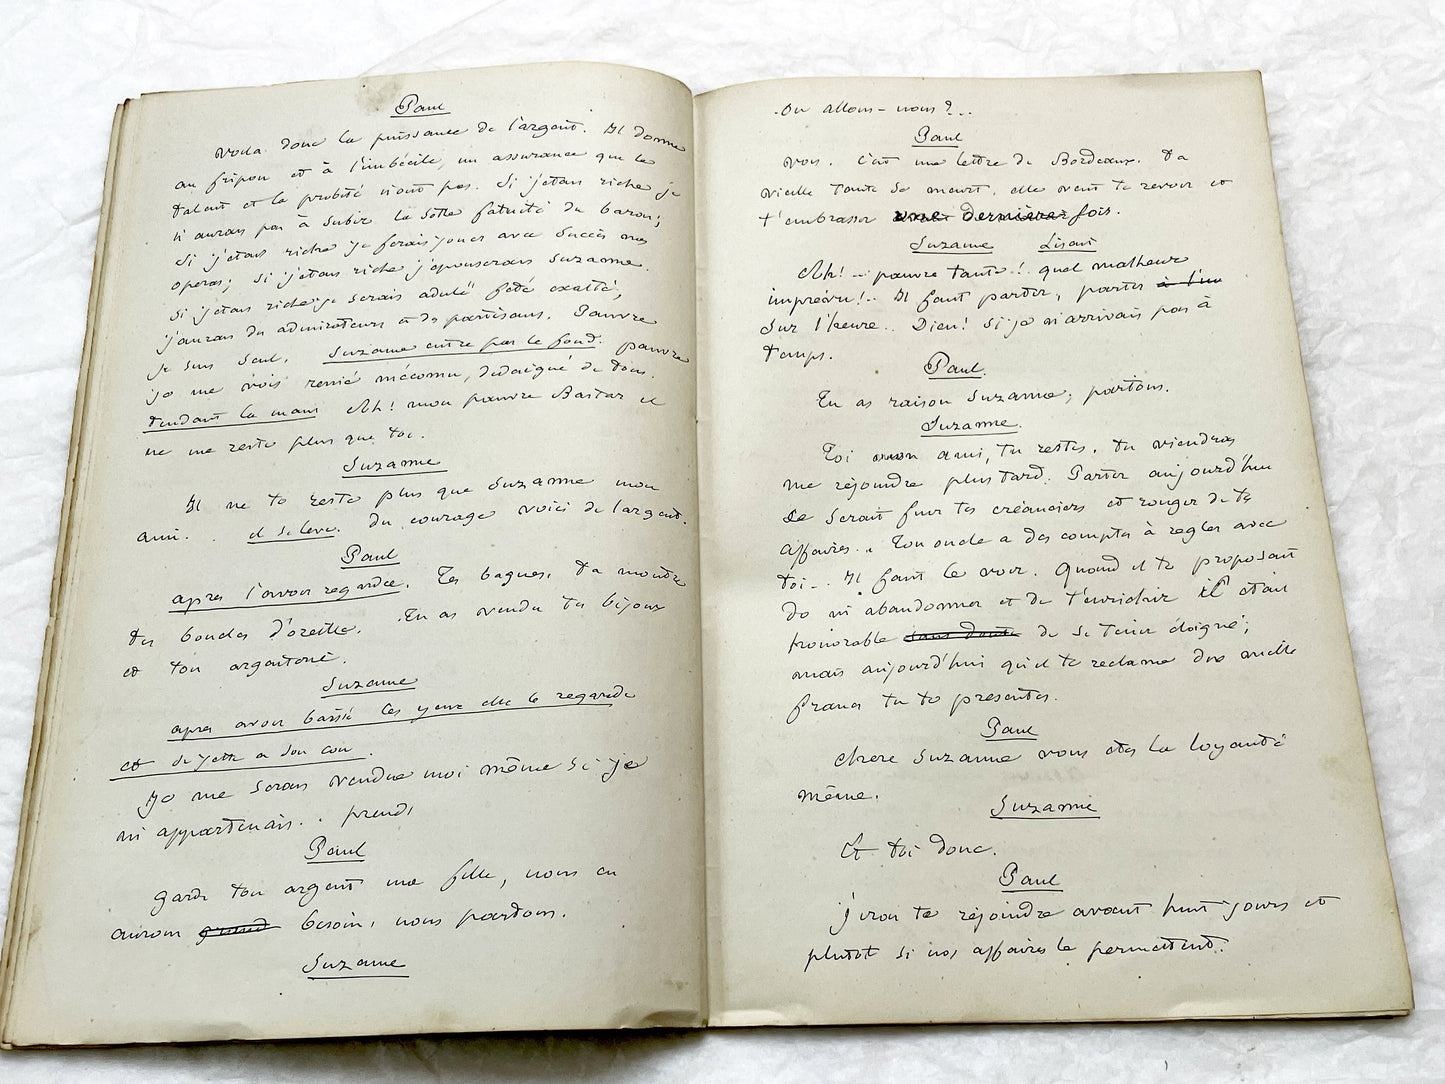 Paul
Voila donc la puissance de l'argent. Il donne
au fripon et à l'imbécile, un assurance que le
talent et la probité n'ont pas. Si j'étais riche je
n'aurais pas à subir la sotte fatuité du baron;
Si j'étais riche je ferais jouer avec succès mes
operas; Si j'étais riche j'épouserais Suzanne.
Si j'étais riche je serais adulé fété exalté,
j'aurais des admirateurs et des partisans. Pauvre
je suis seul. Suzanne entre par le fond. pauvre
je me vois renié méconnu, dédaigné de tous.
tendant la main Ah! mon pauvre Bastar il
ne me reste plus que toi.
Suzanne
Il ne te reste plus que Suzanne mon
ami. . il se leve. du courage voici de l'argent.
Paul
apres l'avoir regardée. Tes bagues, ta montre
tes boucles d'oreille. Tu as vendu tes bijoux
et ton argenterie.
Suzanne
apres avoir baissé les yeux elle le regarde
et se jette a son cou.
Je me serais vendue moi même si je
m'appartenais. . prends
Paul
garde ton argent ma fille, nous en
aurons grand besoin, nous partons.
Suzanne
Ou allons-nous?..
Paul
vois. C'est une lettre de Bordeaux. ta
vieille tante se meurt, elle veut te revoir et
t'embrasser une dernière fois.
Suzanne Lisant
Ah! .. pauvre tante! quel malheur
imprévu!.. Il faut partir, partir à l'in
sur l'heure.. Dieu! si je n'arrivais pas à
temps.
Paul.
Tu as raison Suzanne; partons.
Suzanne.
Toi mon ami, tu restes, tu viendras
me rejoindre plus tard. Partir aujourd'hui
se serait fuir tes créanciers et rougir de tes
affaires.. Ton oncle a des comptes à regler avec
toi.. Il faut le voir. Quand il te proposait
de m'abandonner et de t'enrichir il était
honorable sans doute de se tenir éloigné;
mais aujourd'hui qu'il te reclame dix mille
francs tu te presentes.
Paul
Chere Suzanne vous etes la loyauté
même.
Suzanne
Et toi donc.
Paul
j'irai te rejoindre avant huit jours et
plutot si nos affaires le permettent.